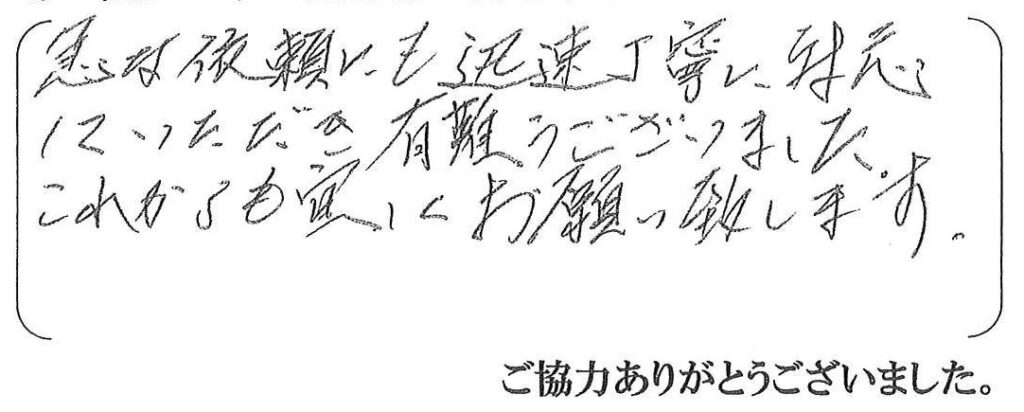 急な依頼にも迅速丁寧に対応
していただき有難うございました。
これからも宜しくお願い致します。
ご協力ありがとうございました。